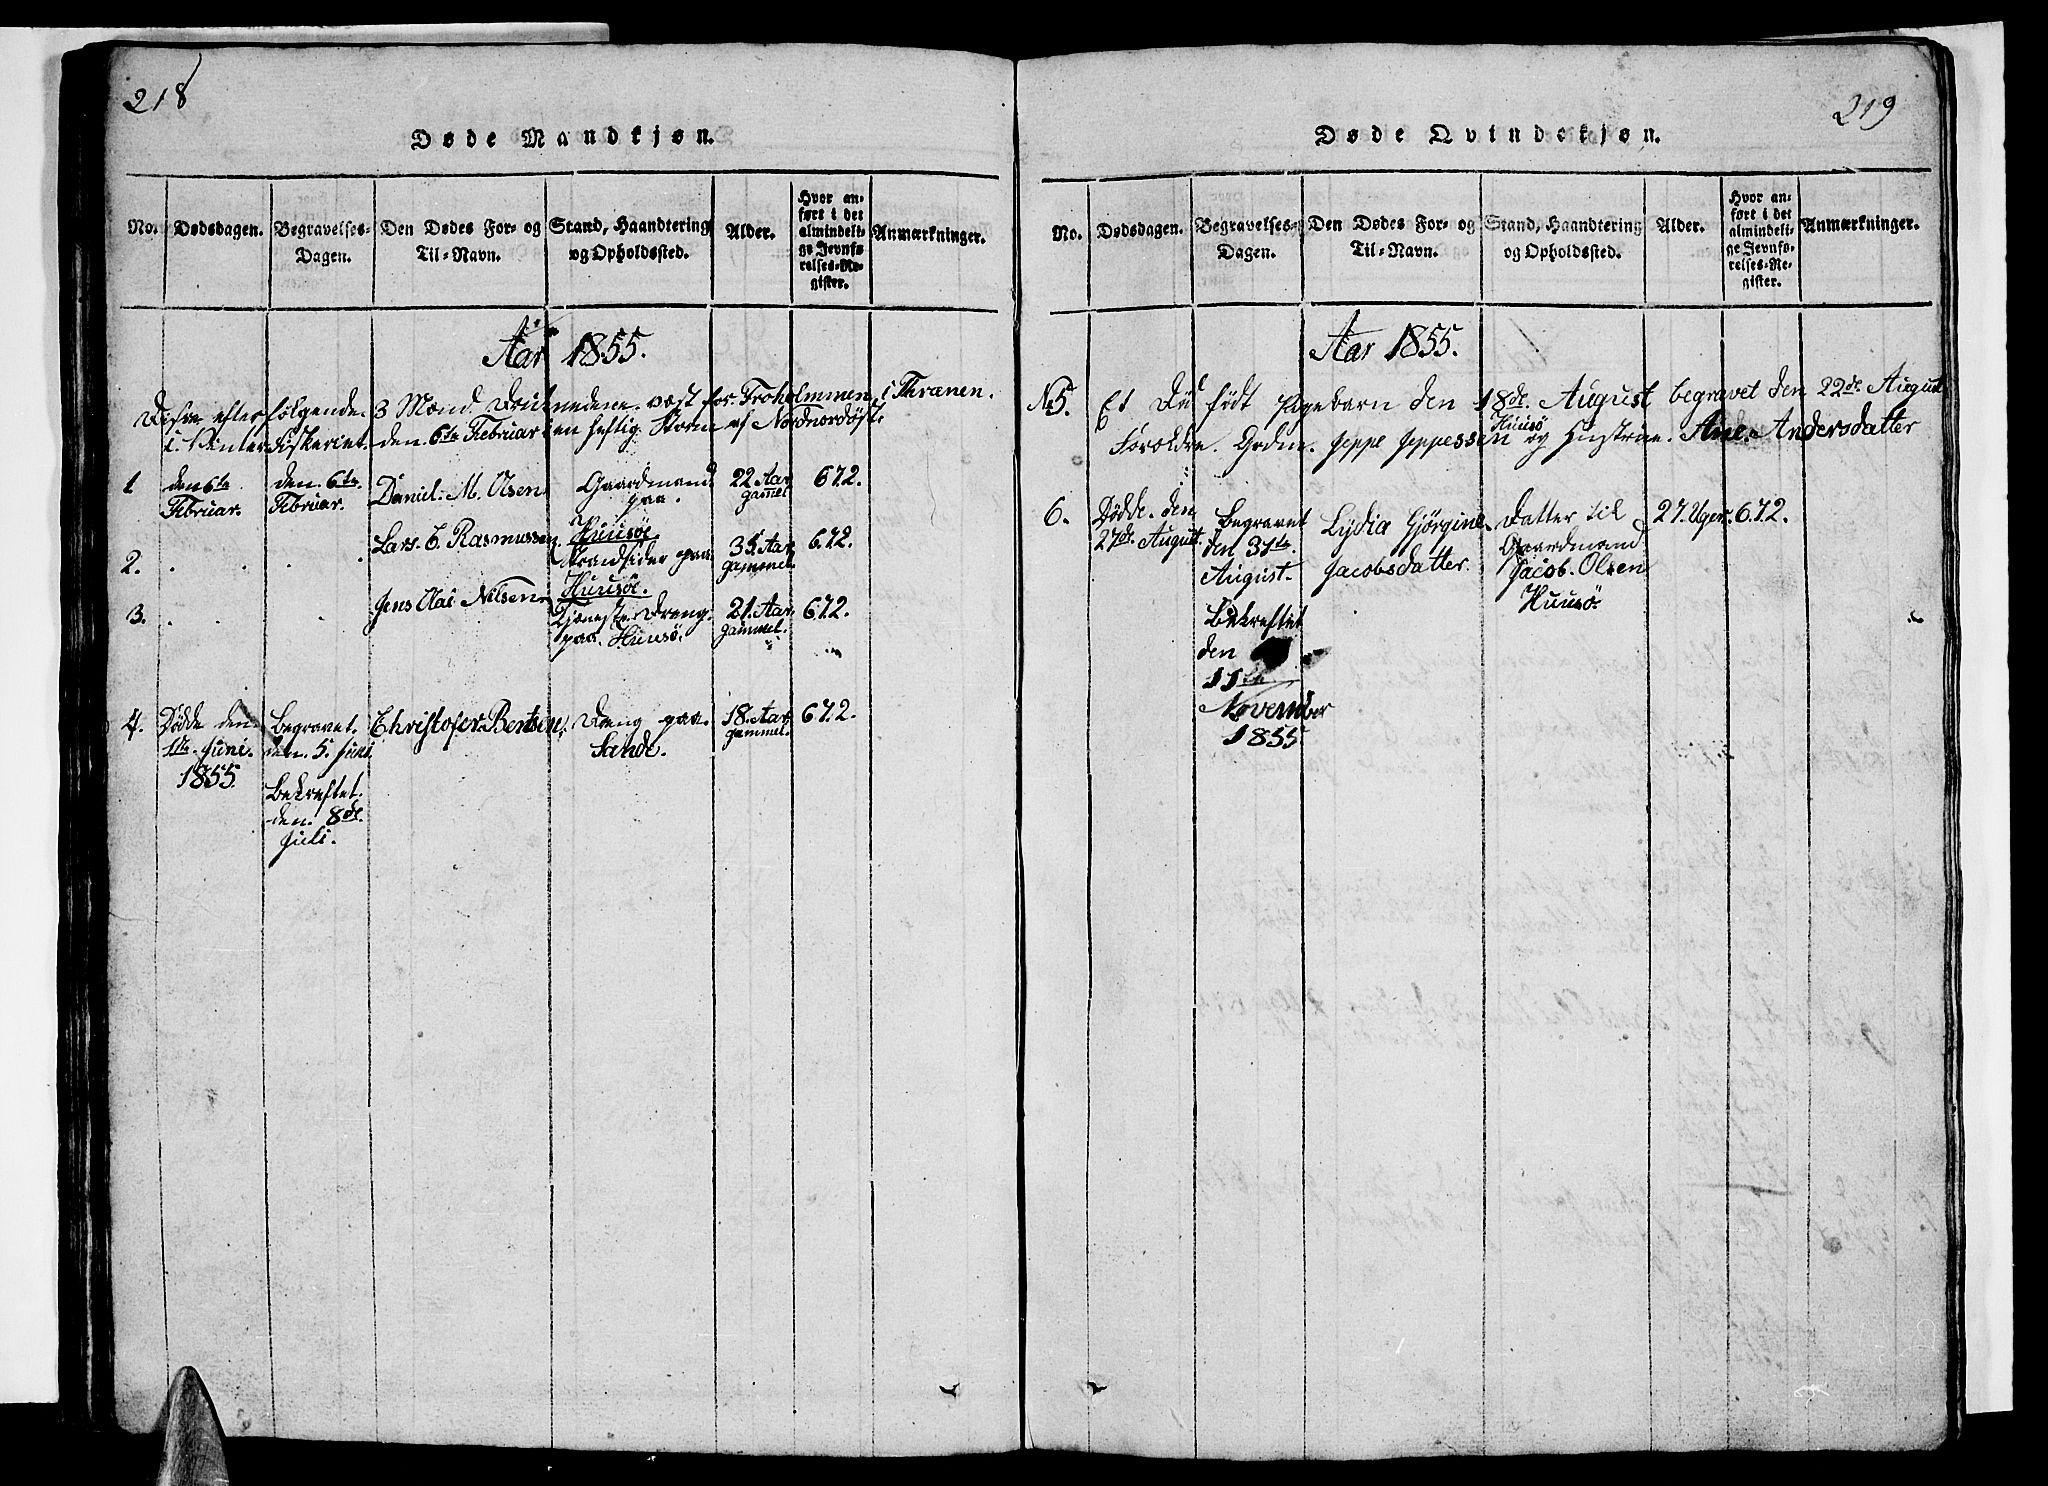 218
Døde Mandkjøn.
No.
Dødsdagen.
Begravelses-
Dagen.
Den Dødes For- og
Til-Navn.
Stand, Haandtering
og Opholdssted.
Alder.
Hvor an-
ført i det
almindeli-
ge Jevnfø-
relses-Re-
gister.
Anmærkninger.
Aar 1855.
Disse efterfølgende 3 Mænd druknedene væst for Froholmmen i Thrænen.
i Vinterfiskeriet. den 6te Februar i en heftig Storm af Nordnordøst
1
den 6te
Februar.
den 6te
Februar.
Daniel. M. Olsen
Gaardmand
paa.
Huusø
22 Aar
gammel
672.
2.
Lars. C. Rasmussen.
Strandsider paa
Huusø.
35 Aar
gammel.
672.
3.
Jens Nilsen
Tjeneste Dreng
paa. Huusø.
21 Aar
gammel.
672.
4.
Dødde den
1te Juni.
1855.
Begravet.
den. 5. Juni
Bekreftet.
den. 8de
Juli.
Christofer. Bentsen.
Dreng paa.
Sande.
18. Aar
gammel.
672.
219
Døde Qvindekjøn.
No.
Dødsdagen.
Begravelses-
Dagen.
Den Dødes For- og
Til-Navn.
Stand, Haandtering
og Opholdssted.
Alder.
Hvor an-
ført i det
almindelig-
ge Jevnfø-
relses-Re-
gister.
Anmærkninger.
Aar 1855.
No 5.
Et Dødfødt Pigebarn den 18de August begravet den 22de August
Huusø
Forældre. Grdm. Jeppe Jeppessen og Hustrue. Ane. Andersdatter
6.
Dødde. den
27de August.
Begravet
den 31te
August.
Bekreftet
den
11te
November
1855
Lydia Gjørgine
Jacobsdatter.
Datter til
Gaardmand
Jacob. Olsen
Huusø.
27. Uger.
672.